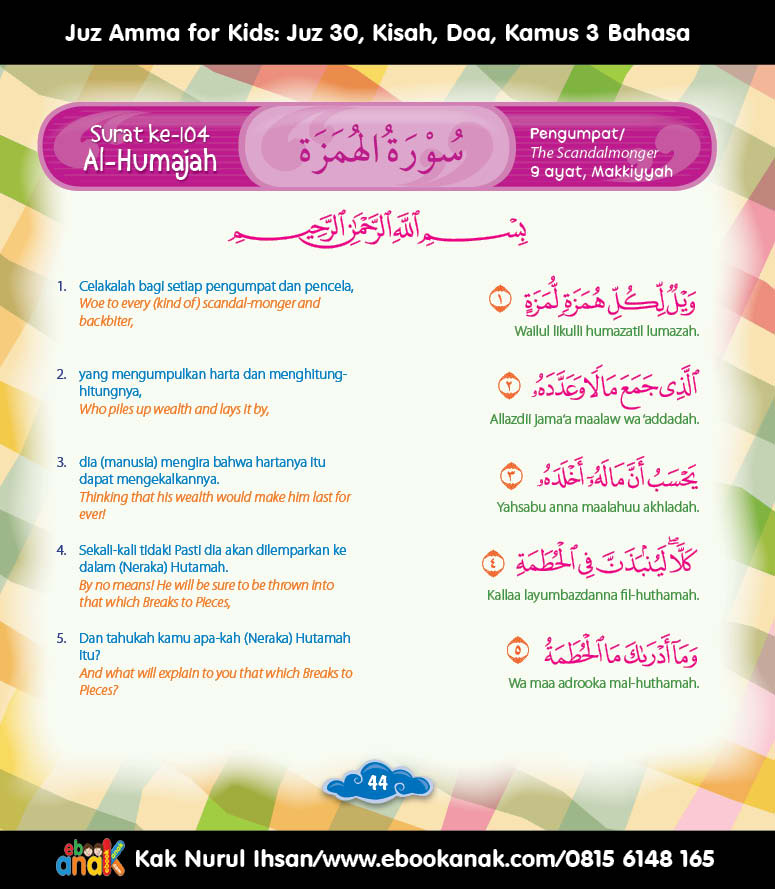 Juz Amma for Kids: Juz 30, Kisah, Doa, Kamus 3 Bahasa
Surat ke-104
Al-Humajah
سُوْرَةُ الْهُمَزَة
Pengumpat/
The Scandalmonger
9 ayat, Makkiyyah
بِسْمِ ٱللَّهِ ٱلرَّحْمَٰنِ ٱلرَّحِيمِ
1. Celakalah bagi setiap pengumpat dan pencela,
Woe to every (kind of) scandal-monger and
backbiter,
وَيْلٌ لِّكُلِّ هُمَزَةٍ لُّمَزَةٍ ١
Wailul likulli humazatil lumazah.
2. yang mengumpulkan harta dan menghitung-
hitungnya,
Who piles up wealth and lays it by,
ٱلَّذِى جَمَعَ مَالًا وَعَدَّدَهُۥ ٢
Allazdii jama'a maalaw wa 'addadah.
3. dia (manusia) mengira bahwa hartanya itu
dapat mengekalkannya.
Thinking that his wealth would make him last for
ever!
يَحْسَبُ أَنَّ مَالَهُۥٓ أَخْلَدَهُۥ ٣
Yahsabu anna maalahuu akhladah.
4. Sekali-kali tidak! Pasti dia akan dilemparkan ke
dalam (Neraka) Hutamah.
By no means! He will be sure to be thrown into
that which Breaks to Pieces,
كَلَّا ۖ لَيُنۢبَذَنَّ فِى ٱلْحُطَمَةِ ٤
Kallaa layumbazdanna fil-huthamah.
5. Dan tahukah kamu apa-kah (Neraka) Hutamah
itu?
And what will explain to you that which Breaks to
Pieces?
وَمَآ أَدْرَىٰكَ مَا ٱلْحُطَمَةُ ٥
Wa maa adrooka mal-huthamah.
44
ebook
anak
Kak Nurul Ihsan/www.ebookanak.com/0815 6148 165